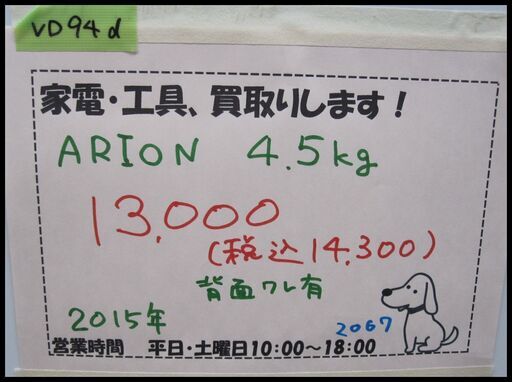 VD94d
家電・工具、買取りします!
ARION 4.5kg
13,000
(税込14,300)
背面ワレ有
2015年
2067
営業時間 平日・土曜日10:00〜18:00